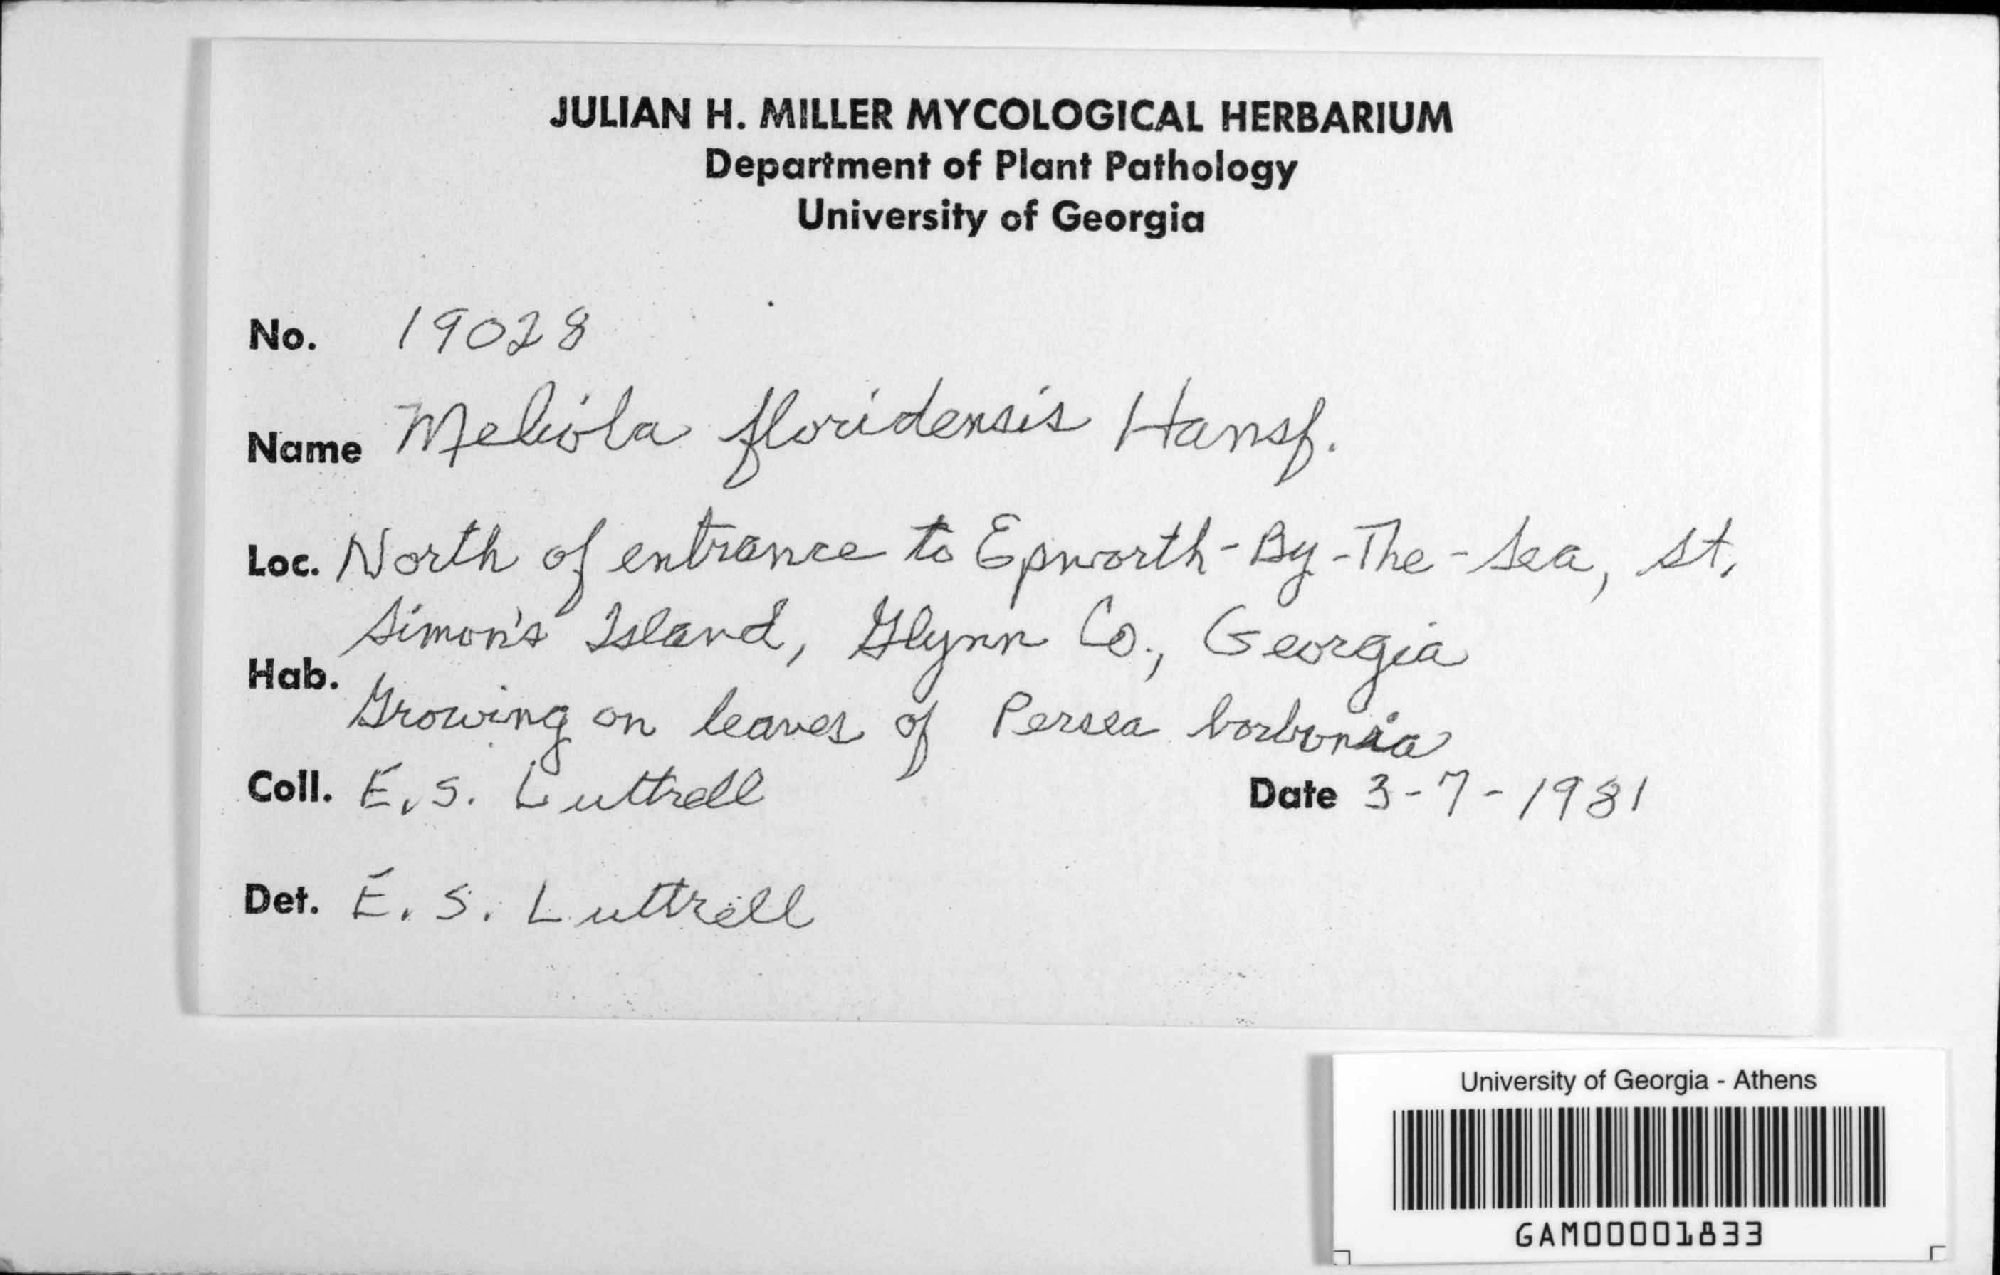 JULIAN H. MILLER MYCOLOGICAL HERBARIUM
Department of Plant Pathology
University of Georgia
No. 19028
Name Meliola floridensis Hansf.
Loc. North of entrance to Epworth-By-The-Sea, St.
Simon's Island, Glynn Co., Georgia
Hab. Growing on leaves of Persea borbonia
Coll. E. S. Luttrell Date 3-7-1981
Det. E. S. Luttrell
University of Georgia - Athens
GAM00001833